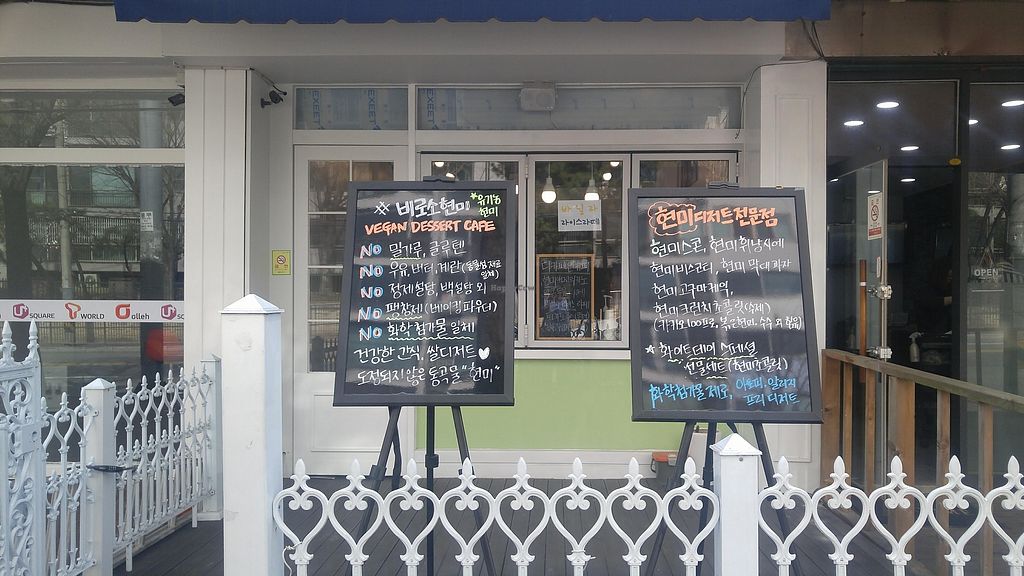 비로소현미
*유기농
현미
VEGAN DESSERT CAFE
NO 밀가루, 글루텐
NO 우유, 버터, 계란(동물성 재료 일체)
NO 정제설탕, 백설탕
NO 팽창제(베이킹파우더)
NO 화학첨가물 일체
건강한 간식, 쌀디저트
도정되지 않은 통곡물 "현미"
바닐라
라이스라떼
현미디저트 전문점
현미스콘, 현미
현미비스코티, 현미 막대과자
현미고구마케익,
현미크런치초콜릿
(카카오100프로, 볶은현미,
*화이트데이 스페셜
선물세트(현미초콜릿)
화학첨가물 제로,
프리 디저트
OPEN
U+ SQUARE
T WORLD
olleh